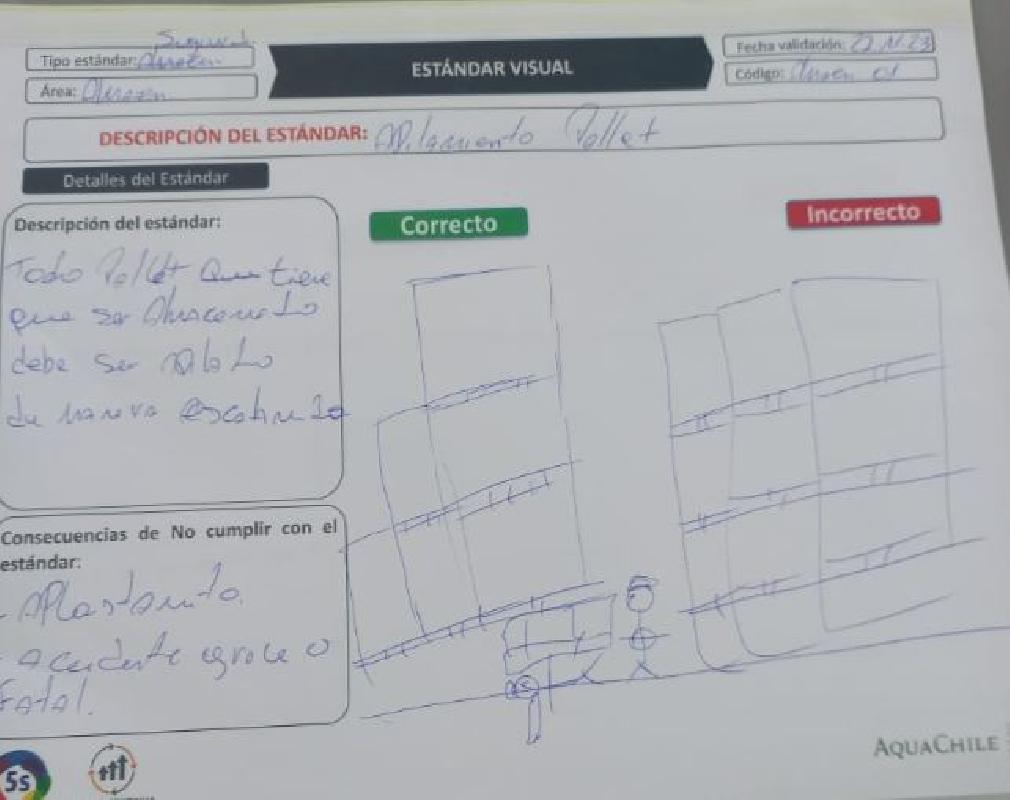 Seguri
Tipo estándar: Almacén
Área: Almacen
ESTÁNDAR VISUAL
Fecha validación: 22.11.23
Código: Almacen 01
DESCRIPCIÓN DEL ESTÁNDAR: Apilamiento Pallet
Detalles del Estándar
Descripción del estándar:
Todo Pallet que tiene
que ser Almacenado
debe ser Apilado
de manera escalonada
Correcto
Incorrecto
Consecuencias de No cumplir con el
estándar:
- Aplastamiento.
- Accidente grave o
Fatal.
5s
AQUACHILE